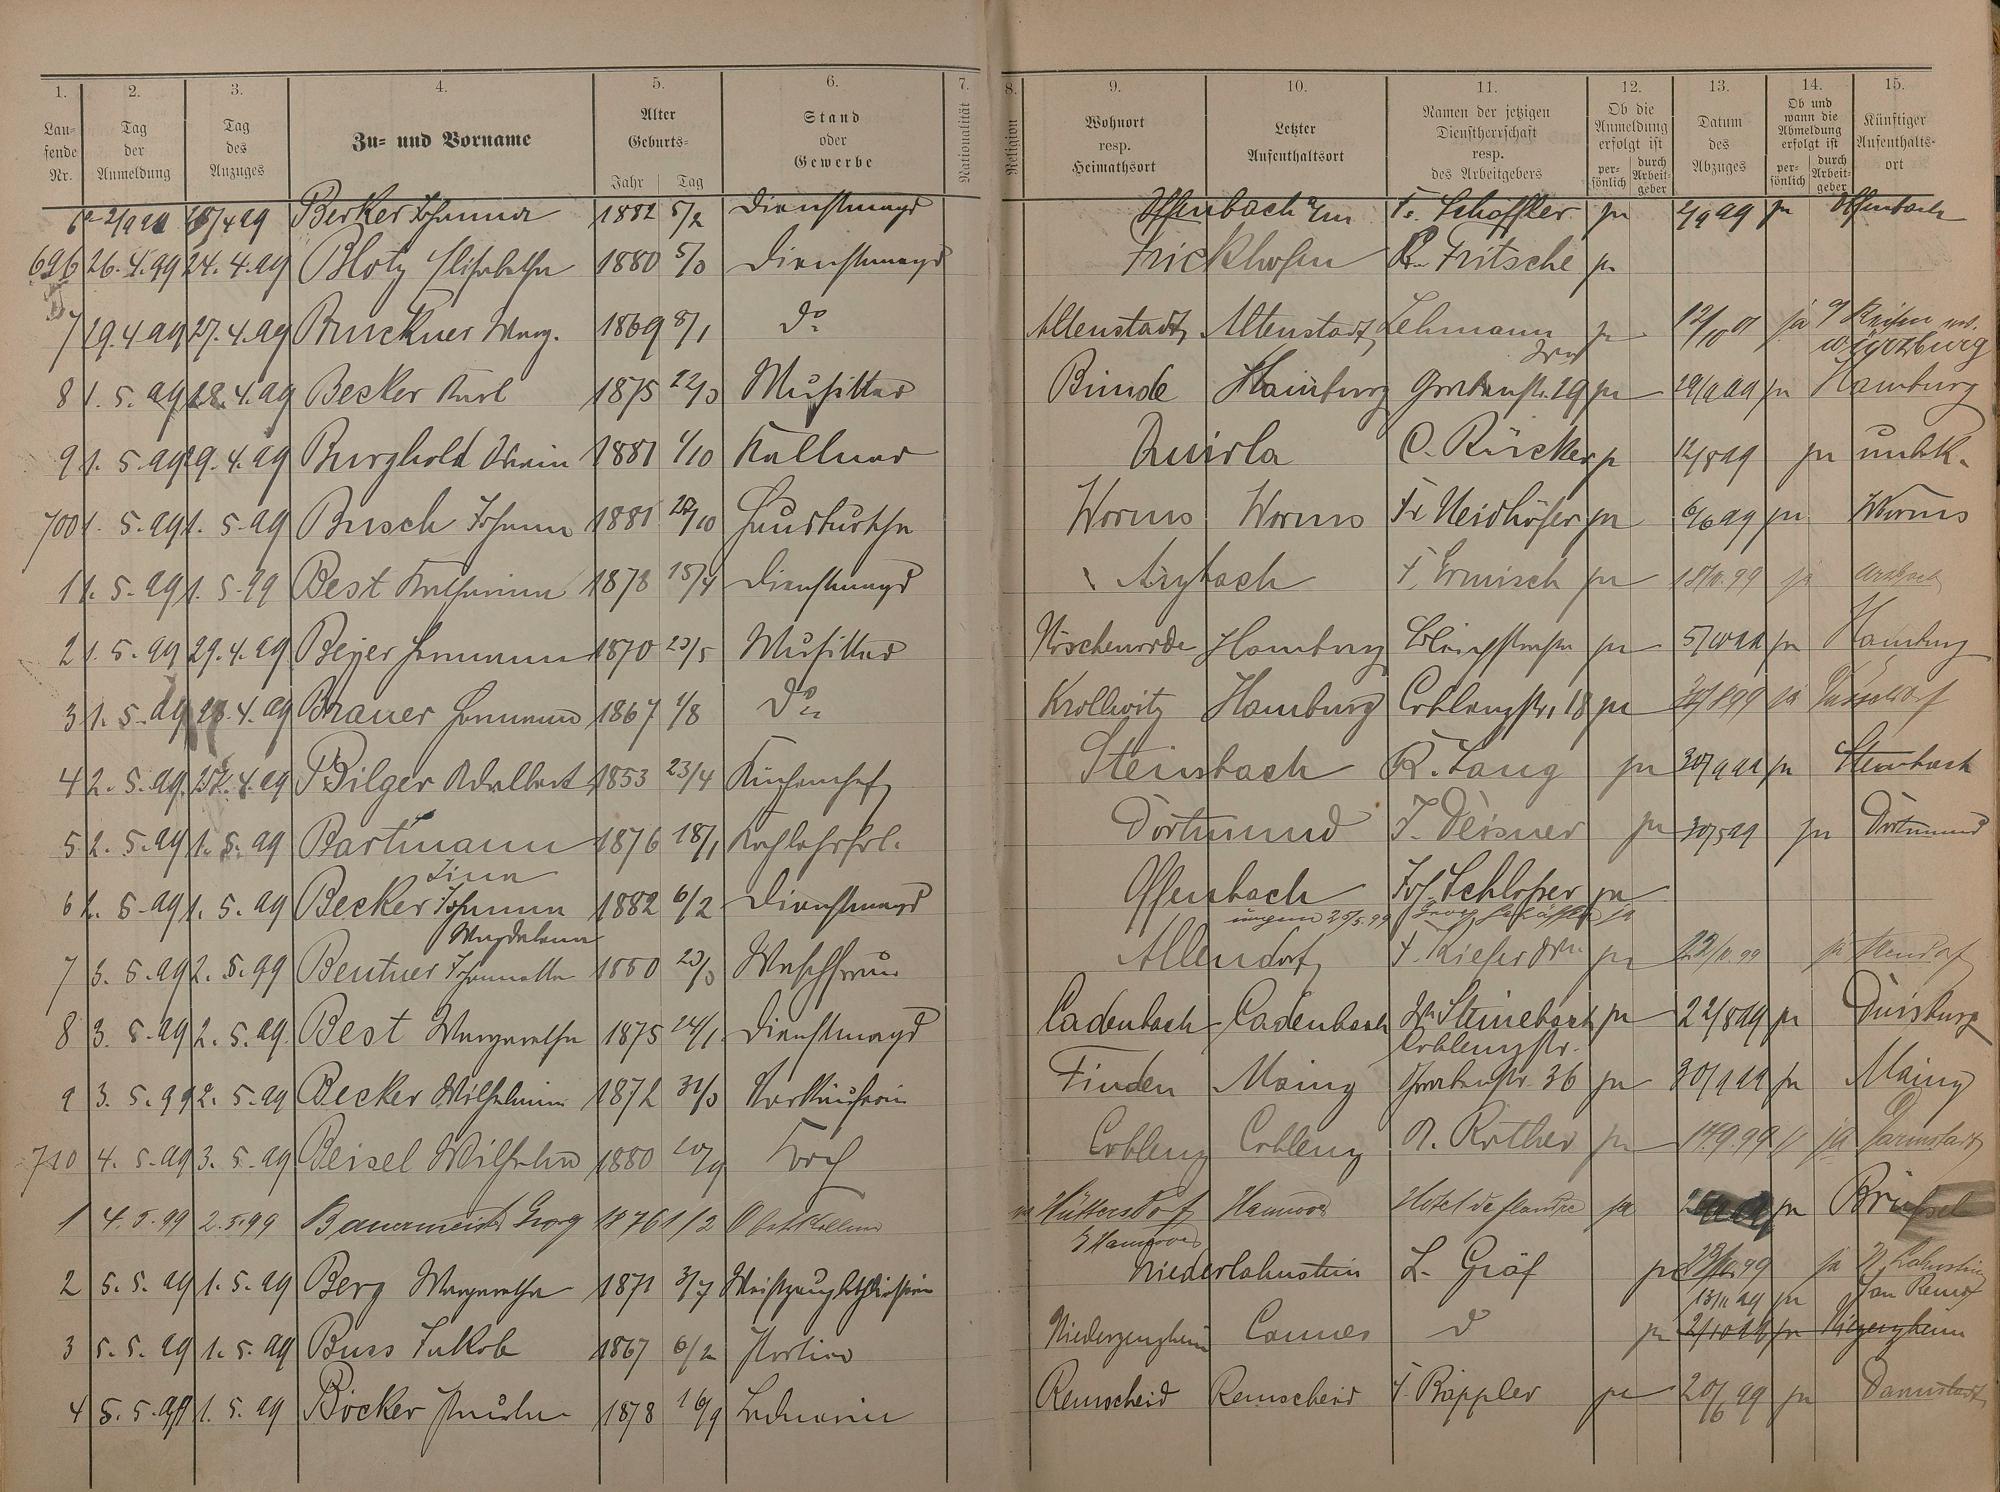 1. 2. 3. 4. 5. 6. 7. 8. 9. 10. 11. 12. 13. 14. 15.
Lau-
fende
Nr.
Tag
der
Anmeldung
Tag
des
Anzuges
Zu- und Vorname
Alter
Geburts-
Jahr Tag
Stand
oder
Gewerbe
Nationalität
Religion
Wohnort
resp.
Heimathsort
Letzter
Aufenthaltsort
Namen der jetzigen
Dienstherrschaft
resp.
des Arbeitgebers
Ob die
Anmeldung
erfolgt ist
per-
sönlich
durch
Arbeit-
geber
Datum
des
Abzuges
Ob und
wann die
Abmeldung
erfolgt ist
per-
sönlich
durch
Arbeit-
geber
Künftiger
Aufenthalts-
ort
Berker Johanna 1882 5/2 Dienstmagd Offenbach a/m Fr. Schöffler ja 2/9 99 ja Offenbach
696 26. 4. 99 24. 4. 99 Blotz Elisabetha 1880 5/3 Dienstmagd Frickhofen Fritsche ja
7 29. 4 99 27. 4. 99 Bruckner Marg. 1869 8/1 do Altenstadt Altenstadt Lehmann ja 12/10 01 ja
Würzburg
8 1. 5. 99 28. 4. 99 Becker Karl 1875 22/3 Musiker Bünde Hamburg Grabenstr. 29 ja 29/9 99 ja Hamburg
9 1. 5. 99 29. 4. 99 Burghold 1881 1/10 Kellner Quirla C. Rücker ja 12/8 99 ja unbk.
700 1. 5. 99 1. 5. 99 Busch Johann 1881 Hausbursche Worms Worms Fr. Neidhöfer ja 6/6 99 ja Worms
1 1. 5. 99 1. 5. 99 Best Katharina 1878 15/4 Dienstmagd Arzbach F. Ermisch ja 18/11. 99 ja Arzbach
2 1. 5. 99 29. 4. 99 Beyer Hermann 1870 23/5 Musiker Nöschenrode Hamburg ja 5/10 99 ja Hamburg
3 1. 5. 99 28. 4. 99 Brauer Hermann 1867 1/8 do Krollwitz Hamburg Coblenzstr. 18 ja 30/8 99 ja Düsseldorf
4 2. 5. 99 4. 99 Bilger Adalbert 1853 23/4 Küchenchef Steinbach R. Lang ja 30/9 99 ja Steinbach
5 2. 5. 99 1. 5. 99 Bartmann 1876 18/1 Kochlehrfrl. Dortmund J. Deisner ja 30/5 99 ja Dortmund
Lina
6 2. 5. 99 1. 5. 99 Becker Johanna 1882 6/2 Dienstmagd Offenbach Jos. Schlosser ja
Magdalena
25/5. 99
7 3. 5. 99 2. 5. 99 Bentner Johannetta 1850 23/3 Waschfrau Allendorf F. Kiefer ja 22/11. 99 ja Allendorf
8 3. 5. 99 2. 5. 99 Best Margaretha 1875 24/1 Dienstmagd Cadenbach Cadenbach Steinebach ja 22/8 99 ja Duisburg
Coblenzstr.
9 3. 5. 99 2. 5. 99 Becker Wilhelmine 1872 31/3 Finden Mainz Grabenstr. 36 ja 30/9 99 ja Mainz
710 4. 5. 99 3. 5. 99 Beisel Wilhelm 1880 20/9 Koch Coblenz Coblenz A. Rother ja 17. 9. 99 ja Darmstadt
1 4. 5. 99 2. 5. 99 Bauermeister Georg 1876 1/2 Oberkellner Hüttersdorf Hannover Hotel de flandre ja ja Brüssel
Hannover
2 5. 5. 99 1. 5. 99 Berg Margaretha 1871 3/7 Weißzeugbeschließerin Niederlahnstein L. Gräf ja 99 ja N. Lahnstein
13/11 99 ja San Remo
3 5. 5. 99 1. 5. 99 Buss Jakob 1867 6/2 Portier Cannes do ja 2/10 99 ja
4 5. 5. 99 1. 5. 99 Böcker Paula 1878 16/9 Ladnerin Remscheid Remscheid F. Rappler ja 20/6 99 ja Darmstadt